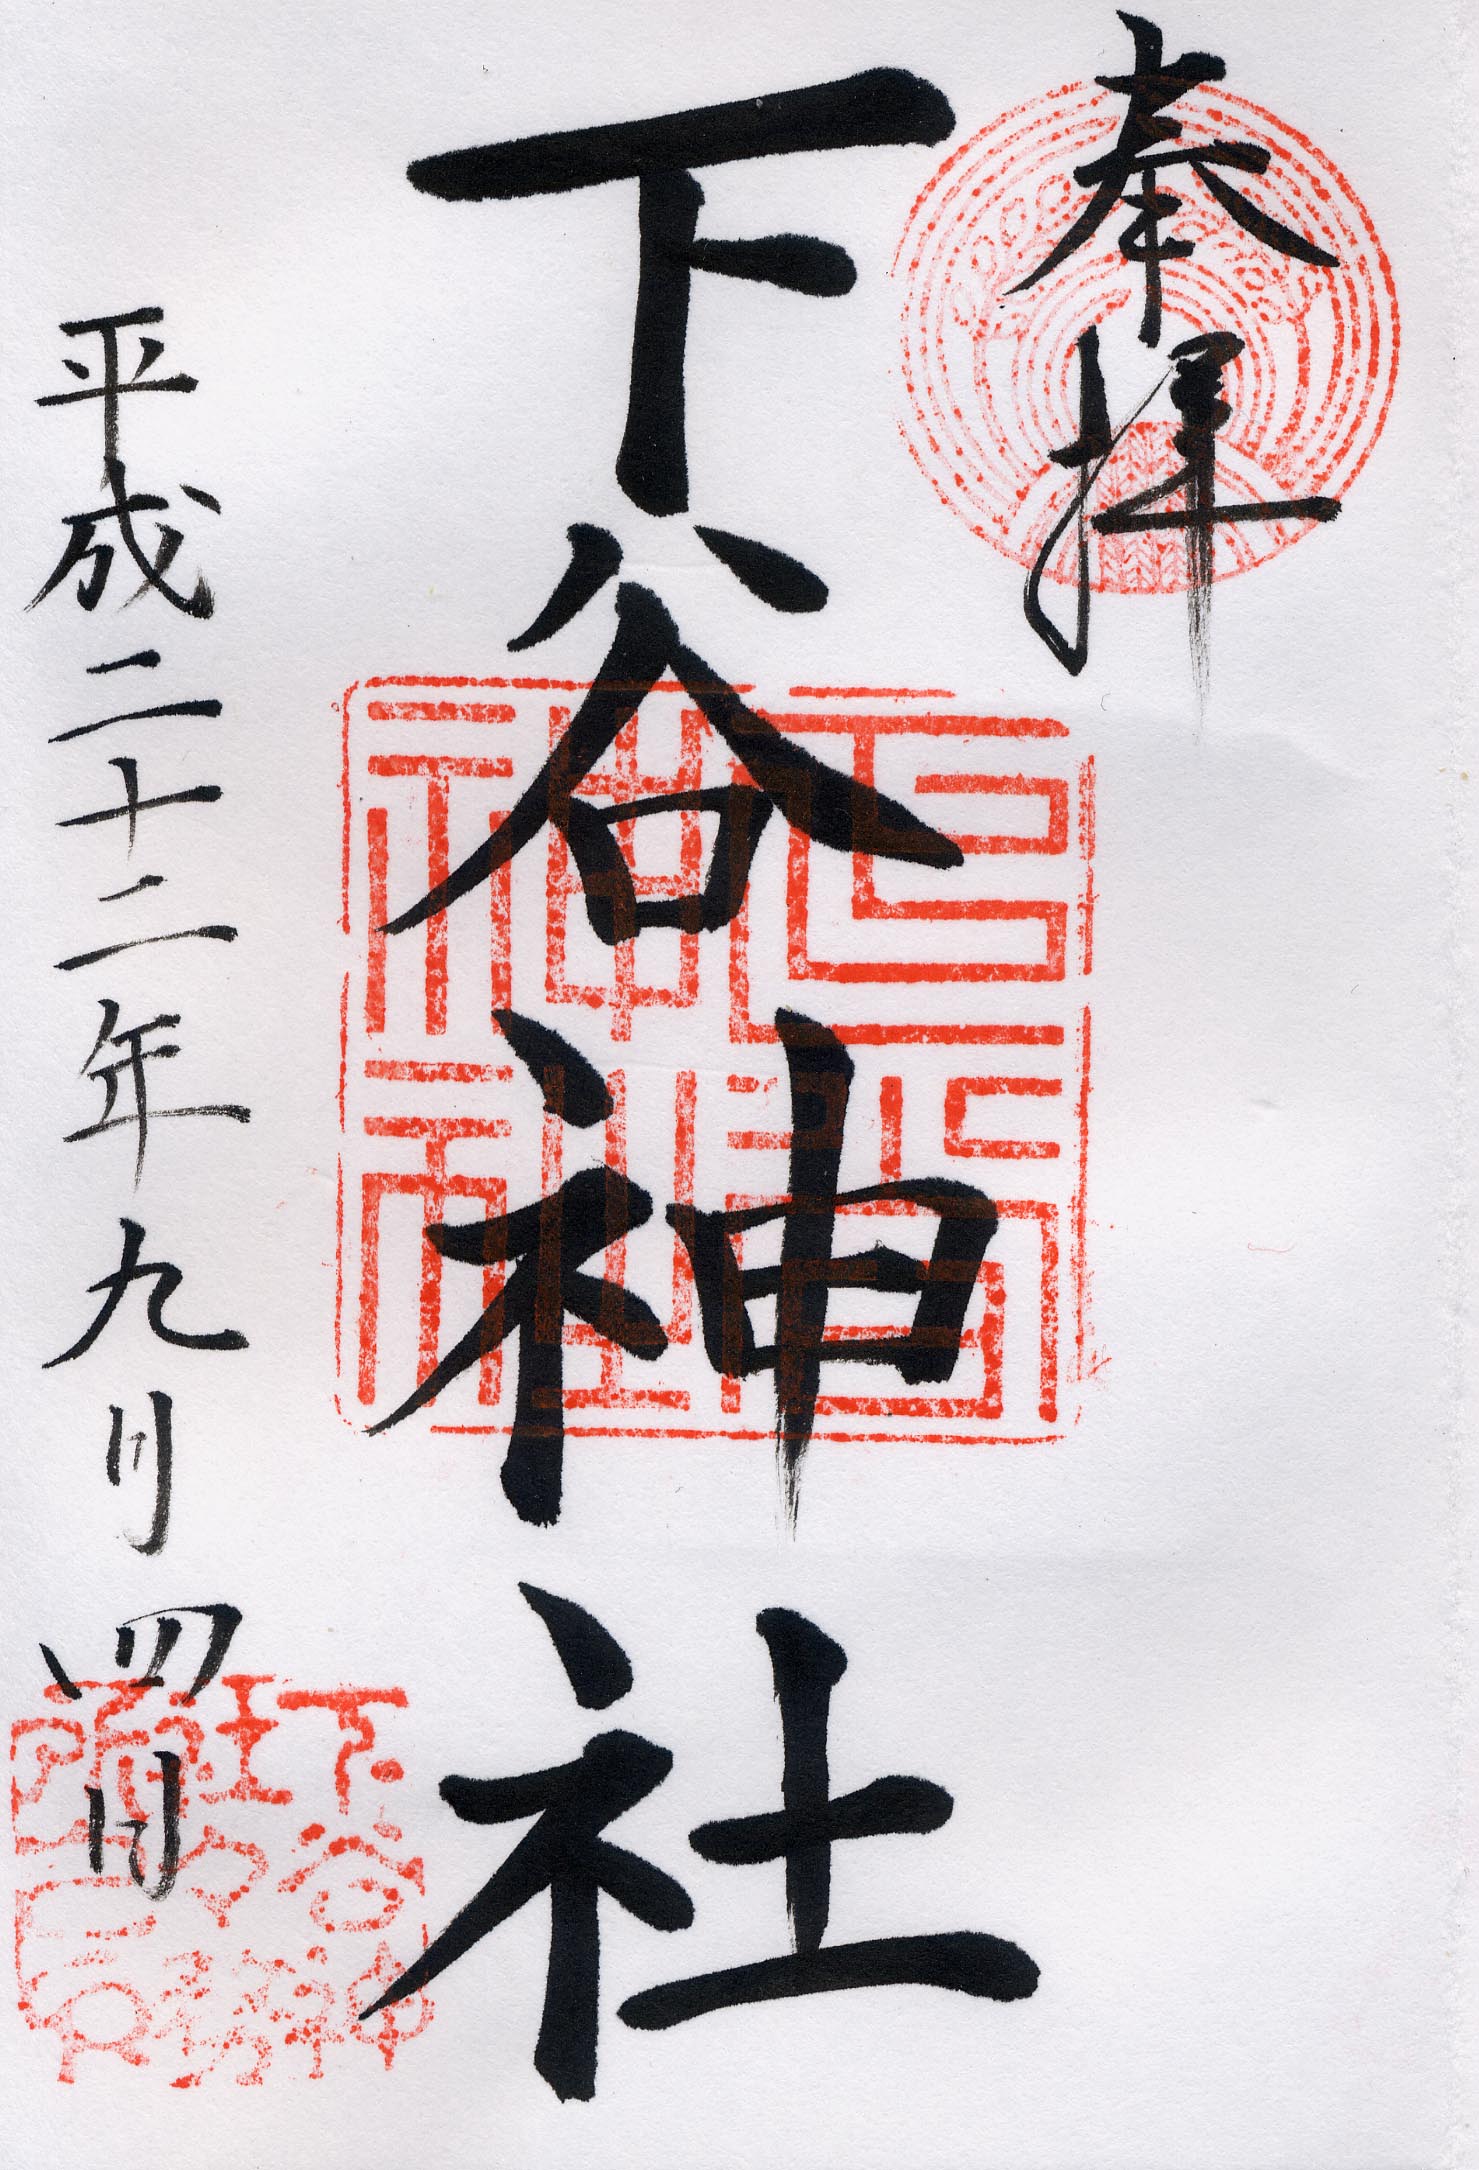 奉拝
下谷神社
平成二十二年九月四日